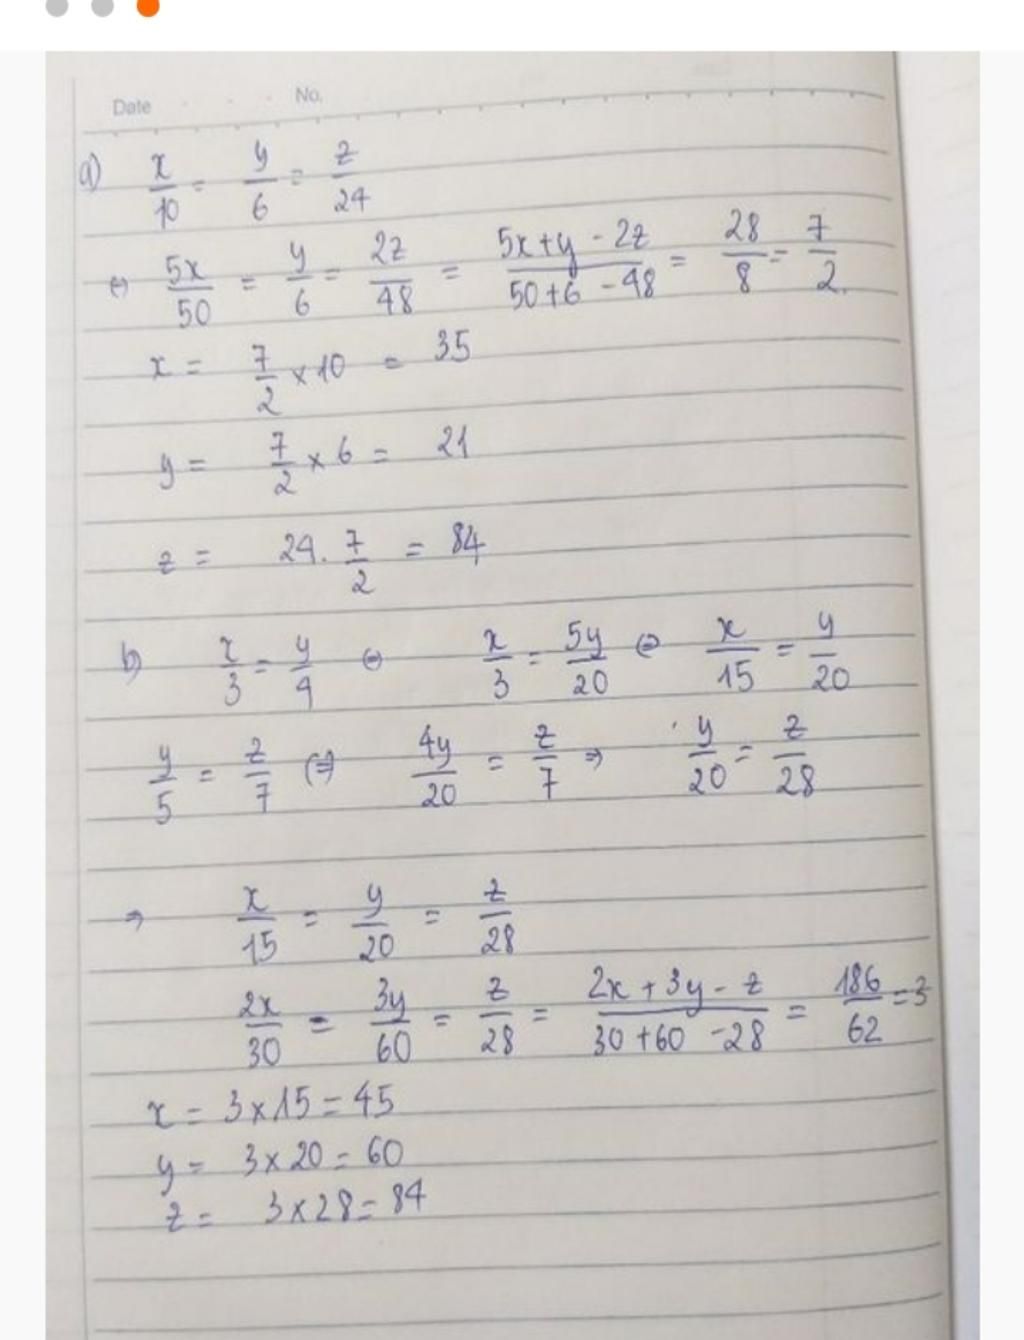 Date No.
a) x/10 = y/6 = z/24
⇔ 5x/50 = y/6 = 2z/48 = 5x+y-2z/50+6-48 = 28/8 = 7/2.
x = 7/2 × 10 = 35
y = 7/2 × 6 = 21
z = 24. 7/2 = 84
b) x/3 = y/4 ⇔ x/3 = 5y/20 ⇔ x/15 = y/20
y/5 = z/7 ⇔ 4y/20 = z/7 ⇒ y/20 = z/28
⇒ x/15 = y/20 = z/28
2x/30 = 3y/60 = z/28 = 2x+3y-z/30+60-28 = 186/62 = 3
x = 3×15 = 45
y = 3×20 = 60
z = 3×28 = 84